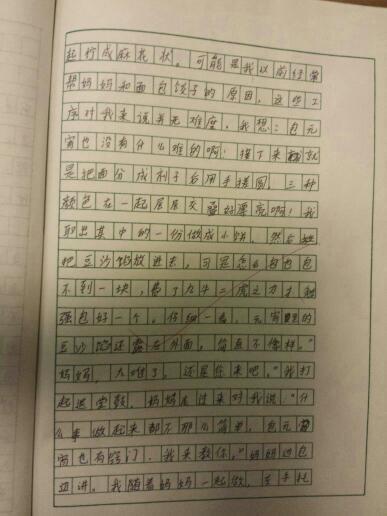 起拧成麻花状。可能是我以前经常
帮妈妈和面包饺子的原因，这些工
序对我来说并无难度，我想：包元
宵也没有什么难的啊！接下来就
是把面分成剂子后用手搓圆，三种
颜色在一起层层交叠好漂亮啊！我
取出其中的一份做成小饼，然后
把豆沙馅放进去，可是怎么包也包
不到一块，费了九牛二虎之力才勉
强包好一个。仔细一看，元宵里的
豆沙馅还露在外面，简直不像样。"
妈妈，太难了，还是你来吧。"我打
起退堂鼓，妈妈走过来对我说："什
么事做起来都不那么简单，包元
宵也有窍门，我来教你。"妈妈边包
边讲。我随着妈妈一起做，左手托